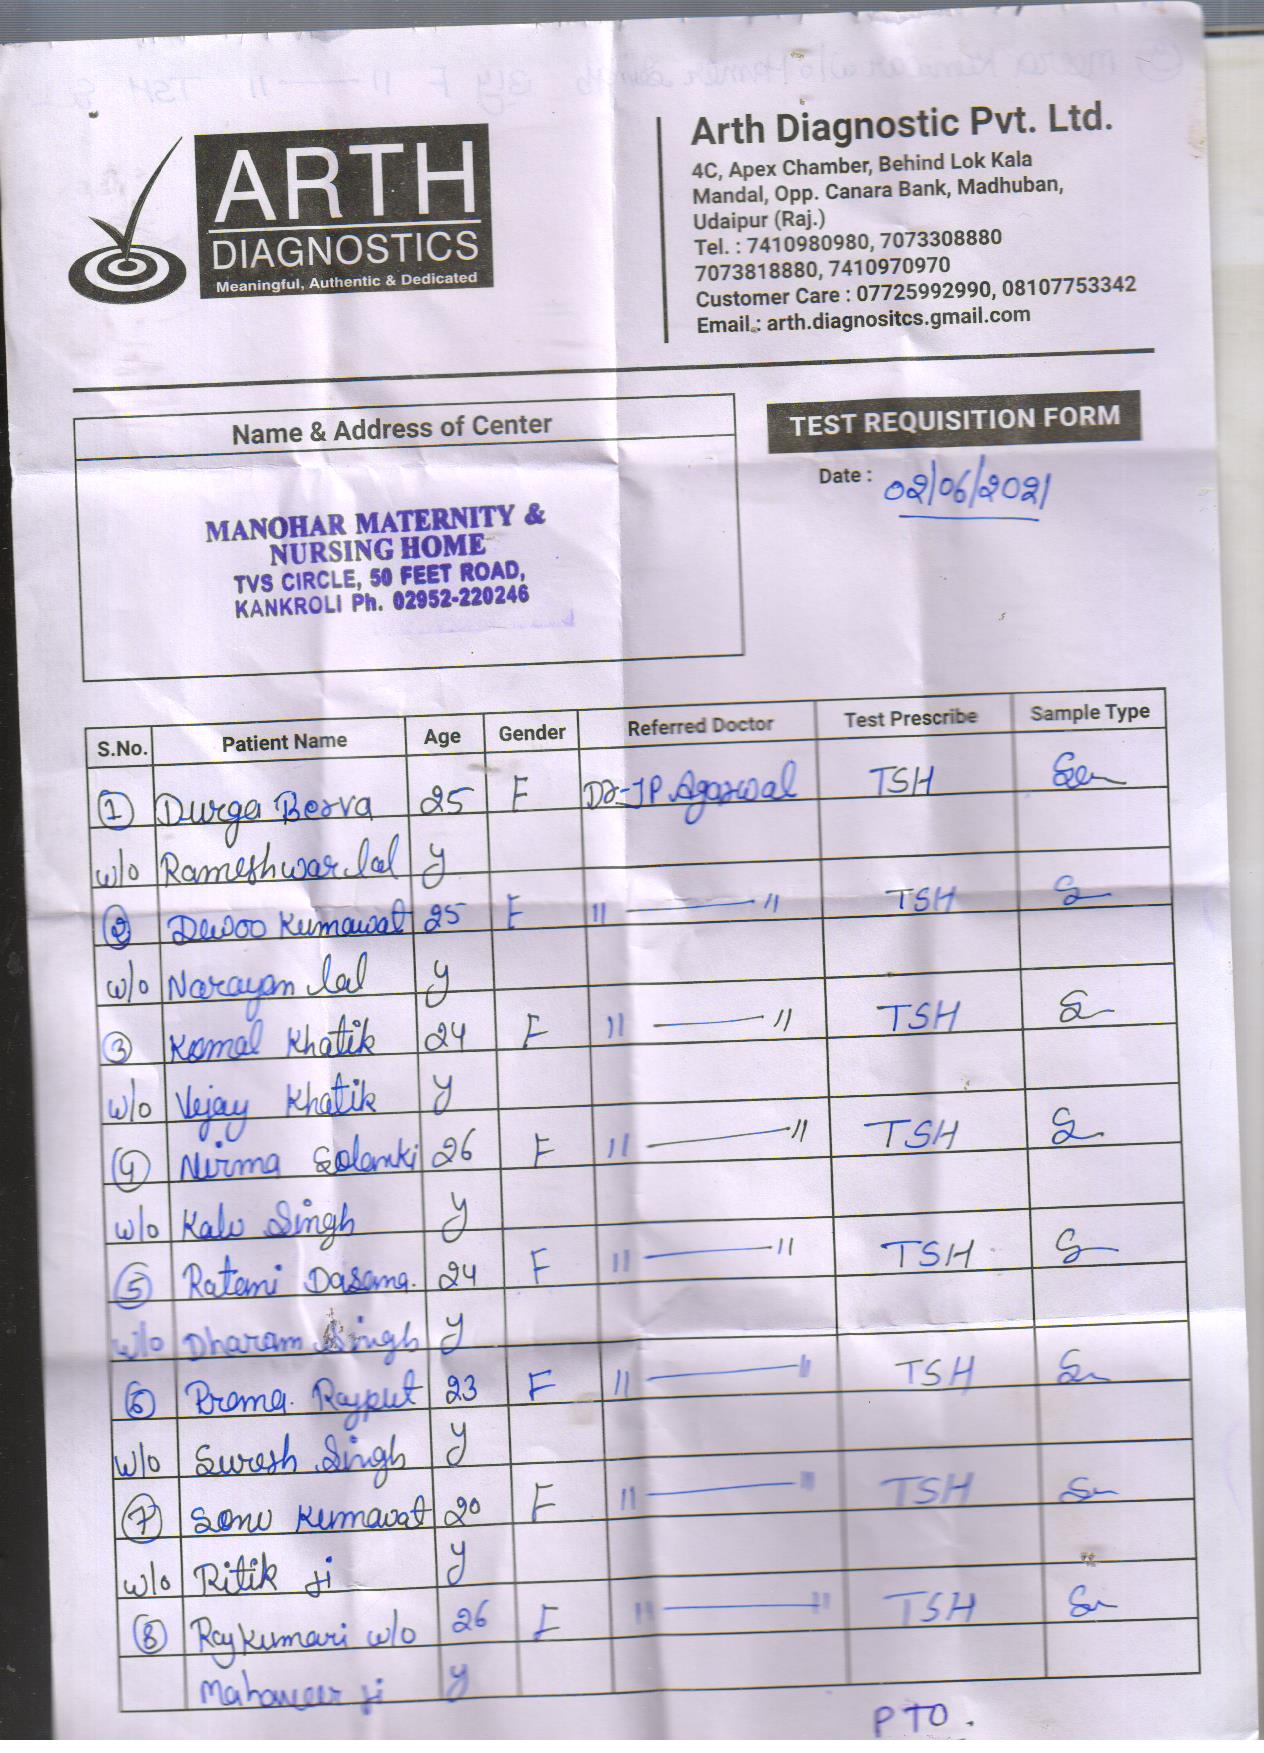 ARTH
DIAGNOSTICS
Meaningful, Authentic & Dedicated
Arth Diagnostic Pvt. Ltd.
4C, Apex Chamber, Behind Lok Kala
Mandal, Opp. Canara Bank, Madhuban,
Udaipur (Raj.)
Tel. : 7410980980, 7073308880
7073818880, 7410970970
Customer Care : 07725992990, 08107753342
Email.: arth.diagnositcs.gmail.com
Name & Address of Center
TEST REQUISITION FORM
Date : 02/06/2021
MANOHAR MATERNITY &
NURSING HOME
TVS CIRCLE, 50 FEET ROAD,
KANKROLI Ph. 02952-220246
S.No. Patient Name Age Gender Referred Doctor Test Prescribe Sample Type
1 Durga Berva 25 F Dr-JP.Agarwal TSH
w/o Rameshwar lal y
2 Kumawat 25 F " — " TSH S
w/o Narayan lal y
3 Komal Khatik 24 F " — " TSH S
w/o Vejay Khatik y
4 Nirma Solanki 26 F " — " TSH S
w/o Kalu Singh y
5 Ratani Dasana. 24 F " — " TSH S
w/o Dharam Singh y
6 Prema. Rajput 23 F " — " TSH S
w/o Suresh Singh y
7 Sonu Kumavat 20 F " — " TSH S
w/o Ritik Ji y
8 Rajkumari w/o 26 F " — " TSH S
Mahaveer ji y
PTO.